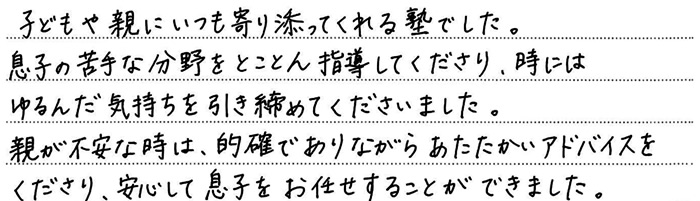 子どもや親にいつも寄り添ってくれる塾でした。
息子の苦手な分野をとことん指導してくださり、時には
ゆるんだ気持ちを引き締めてくださいました。
親が不安な時は、的確でありながらあたたかいアドバイスを
くださり、安心して息子をお任せすることができました。